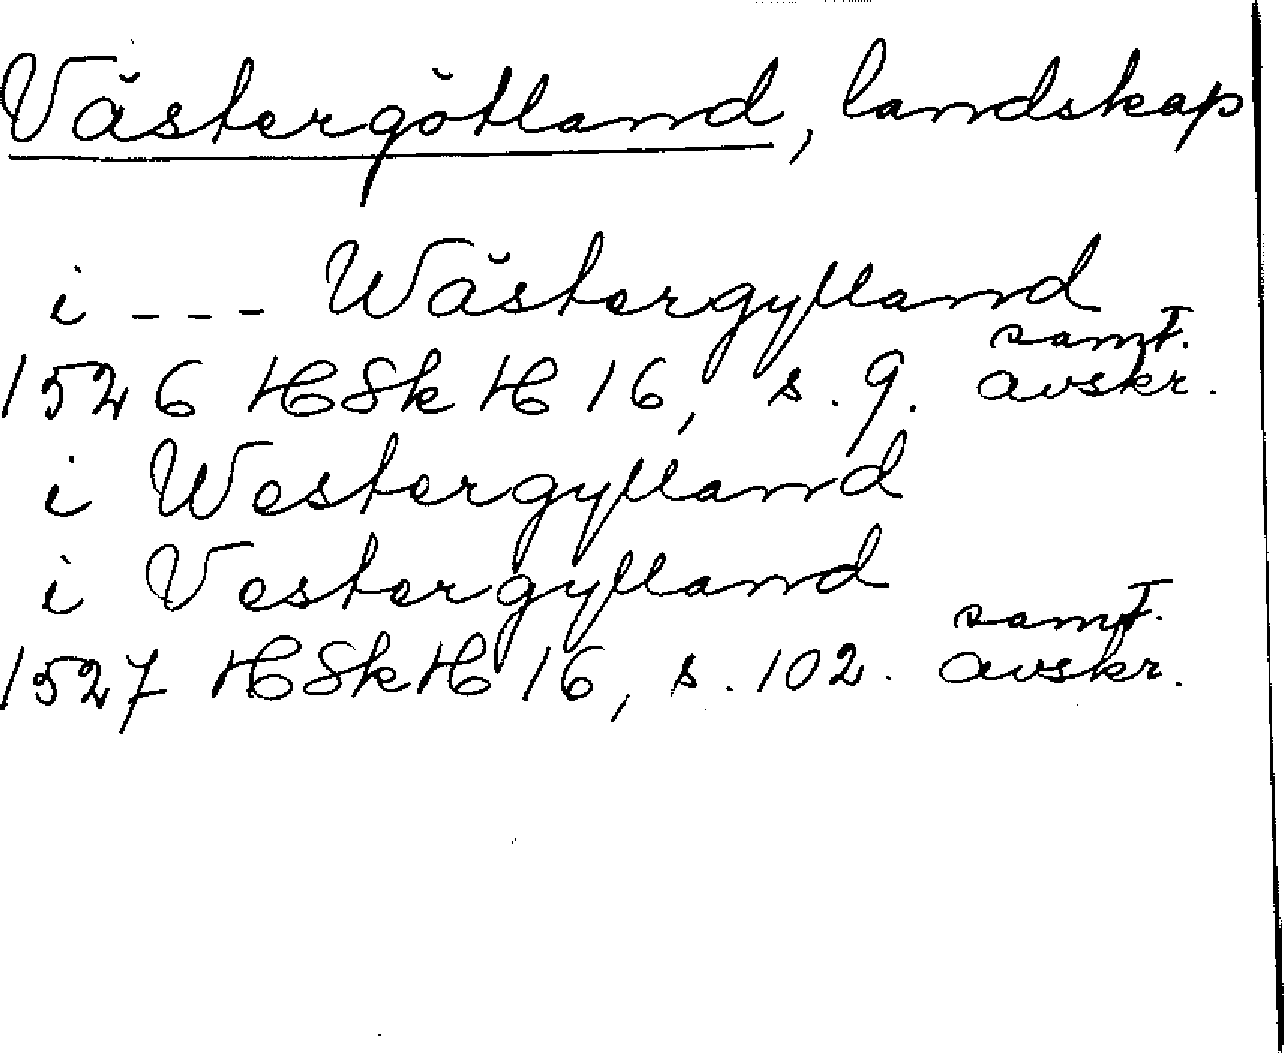 Västergötland, landskap
i - - - Wästergylland
1526 HSkH 16, s. 9. samt. avskr.
i Westergylland
i Vestergylland
1527 HSkH 16, s. 102. samt. avskr.